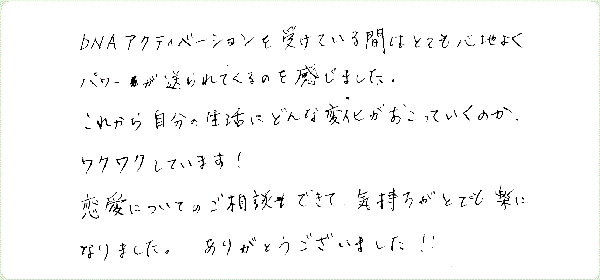 DNAアクティベーションを受けている間はとても心地よく
パワーが送られてくるのを感じました。
これから自分の生活にどんな変化がおこっていくのか、
ワクワクしています!
恋愛についてのご相談もできて、気持ちがとても楽に
なりました。 ありがとうございました!!